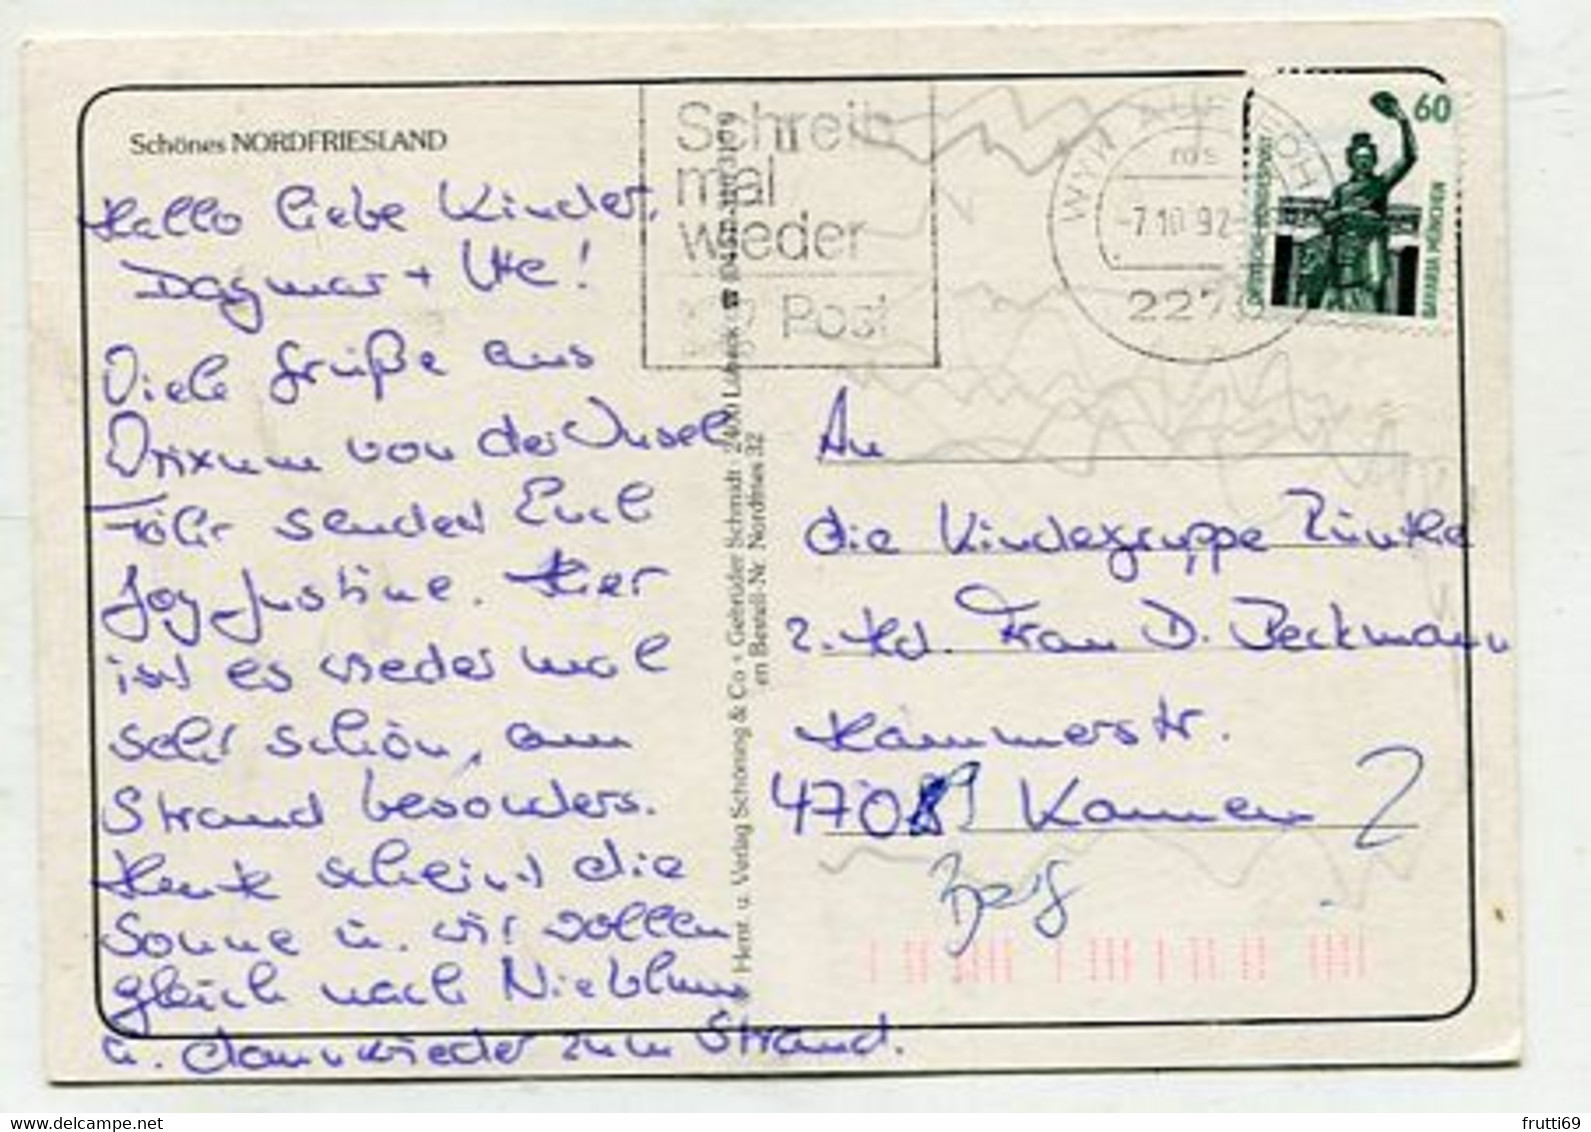 Schönes NORDFRIESLAND
Hallo liebe Kinder,
Dagmar + Ute!
Viele Grüße aus
Orixum von der Insel
Föhr senden Euch
Joy-Justine. Hier
ist es wieder mal
sehr schön, am
Strand besonders.
Heute scheint die
Sonne u. wir wollen
gleich nach Nieblum
u. dann wieder zum Strand.
Schreib
mal
wieder
Post
WYK AUF FÖH
-7.10.92-
227
60
DEUTSCHE BUNDESPOST
BAVARIA MÜNCHEN
Herst. u. Verlag Schöning & Co + Gebrüder Schmidt · 2400 Lübeck ☎
en Bestell-Nr. Nordfries 32
An
die Kindergruppe
z. Hd. Frau D. Beckmann
Hammerstr.
4708 Kamen 2
frutti69